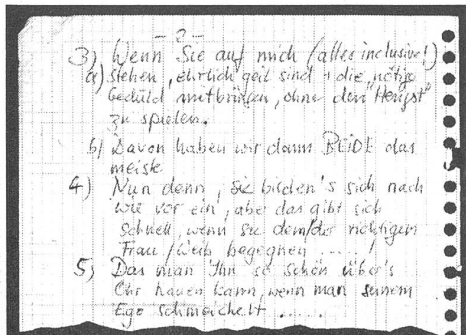 - 2 -
3) Wenn Sie auf mich (alles inclusive!)
a) stehen, ehrlich geil sind + die nötige
Geduld mitbringen, ohne den "Hengst"
zu spielen.
b) Davon haben wir dann BEIDE das
meiste
4) Nun denn, Sie bilden's sich nach
wie vor ein, aber das gibt sich
schnell, wenn sie dem/der richtigen
Frau/Weib begegnen ......!
5) Das man Ihn so schön über's
Ohr hauen kann, wenn man seinem
Ego schmeichelt ......